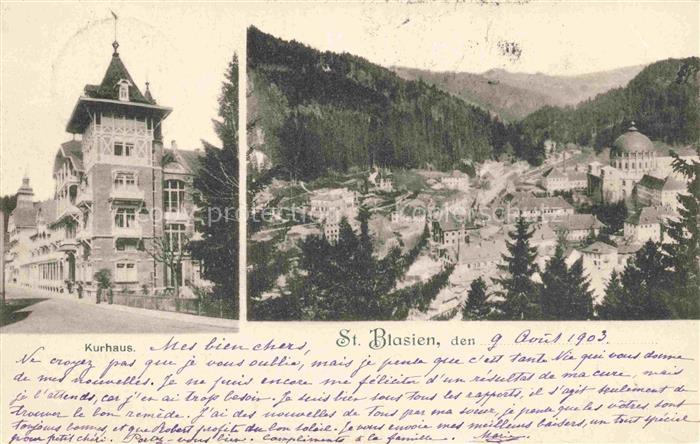 Kurhaus.
St. Blasien, den 9 Août 1903.
Mes bien chers,
Ne croyez pas que je vous oublie, mais je pense que c'est tante Vie qui vous donne
de mes nouvelles. Je ne puis encore me féliciter d'un résultat de ma cure, mais
je l'attends, car j'en ai trop besoin. Je suis bien sous tous les rapports, il s'agit seulement de
trouver le bon remède. J'ai des nouvelles de tous par ma sœur, je pense que les vôtres sont
toujours bonnes, et que Robert profite du bon soleil. Je vous envoie mes meilleurs baisers, un tout spécial
pour petit chéri. vous bien. Compliments à la famille.